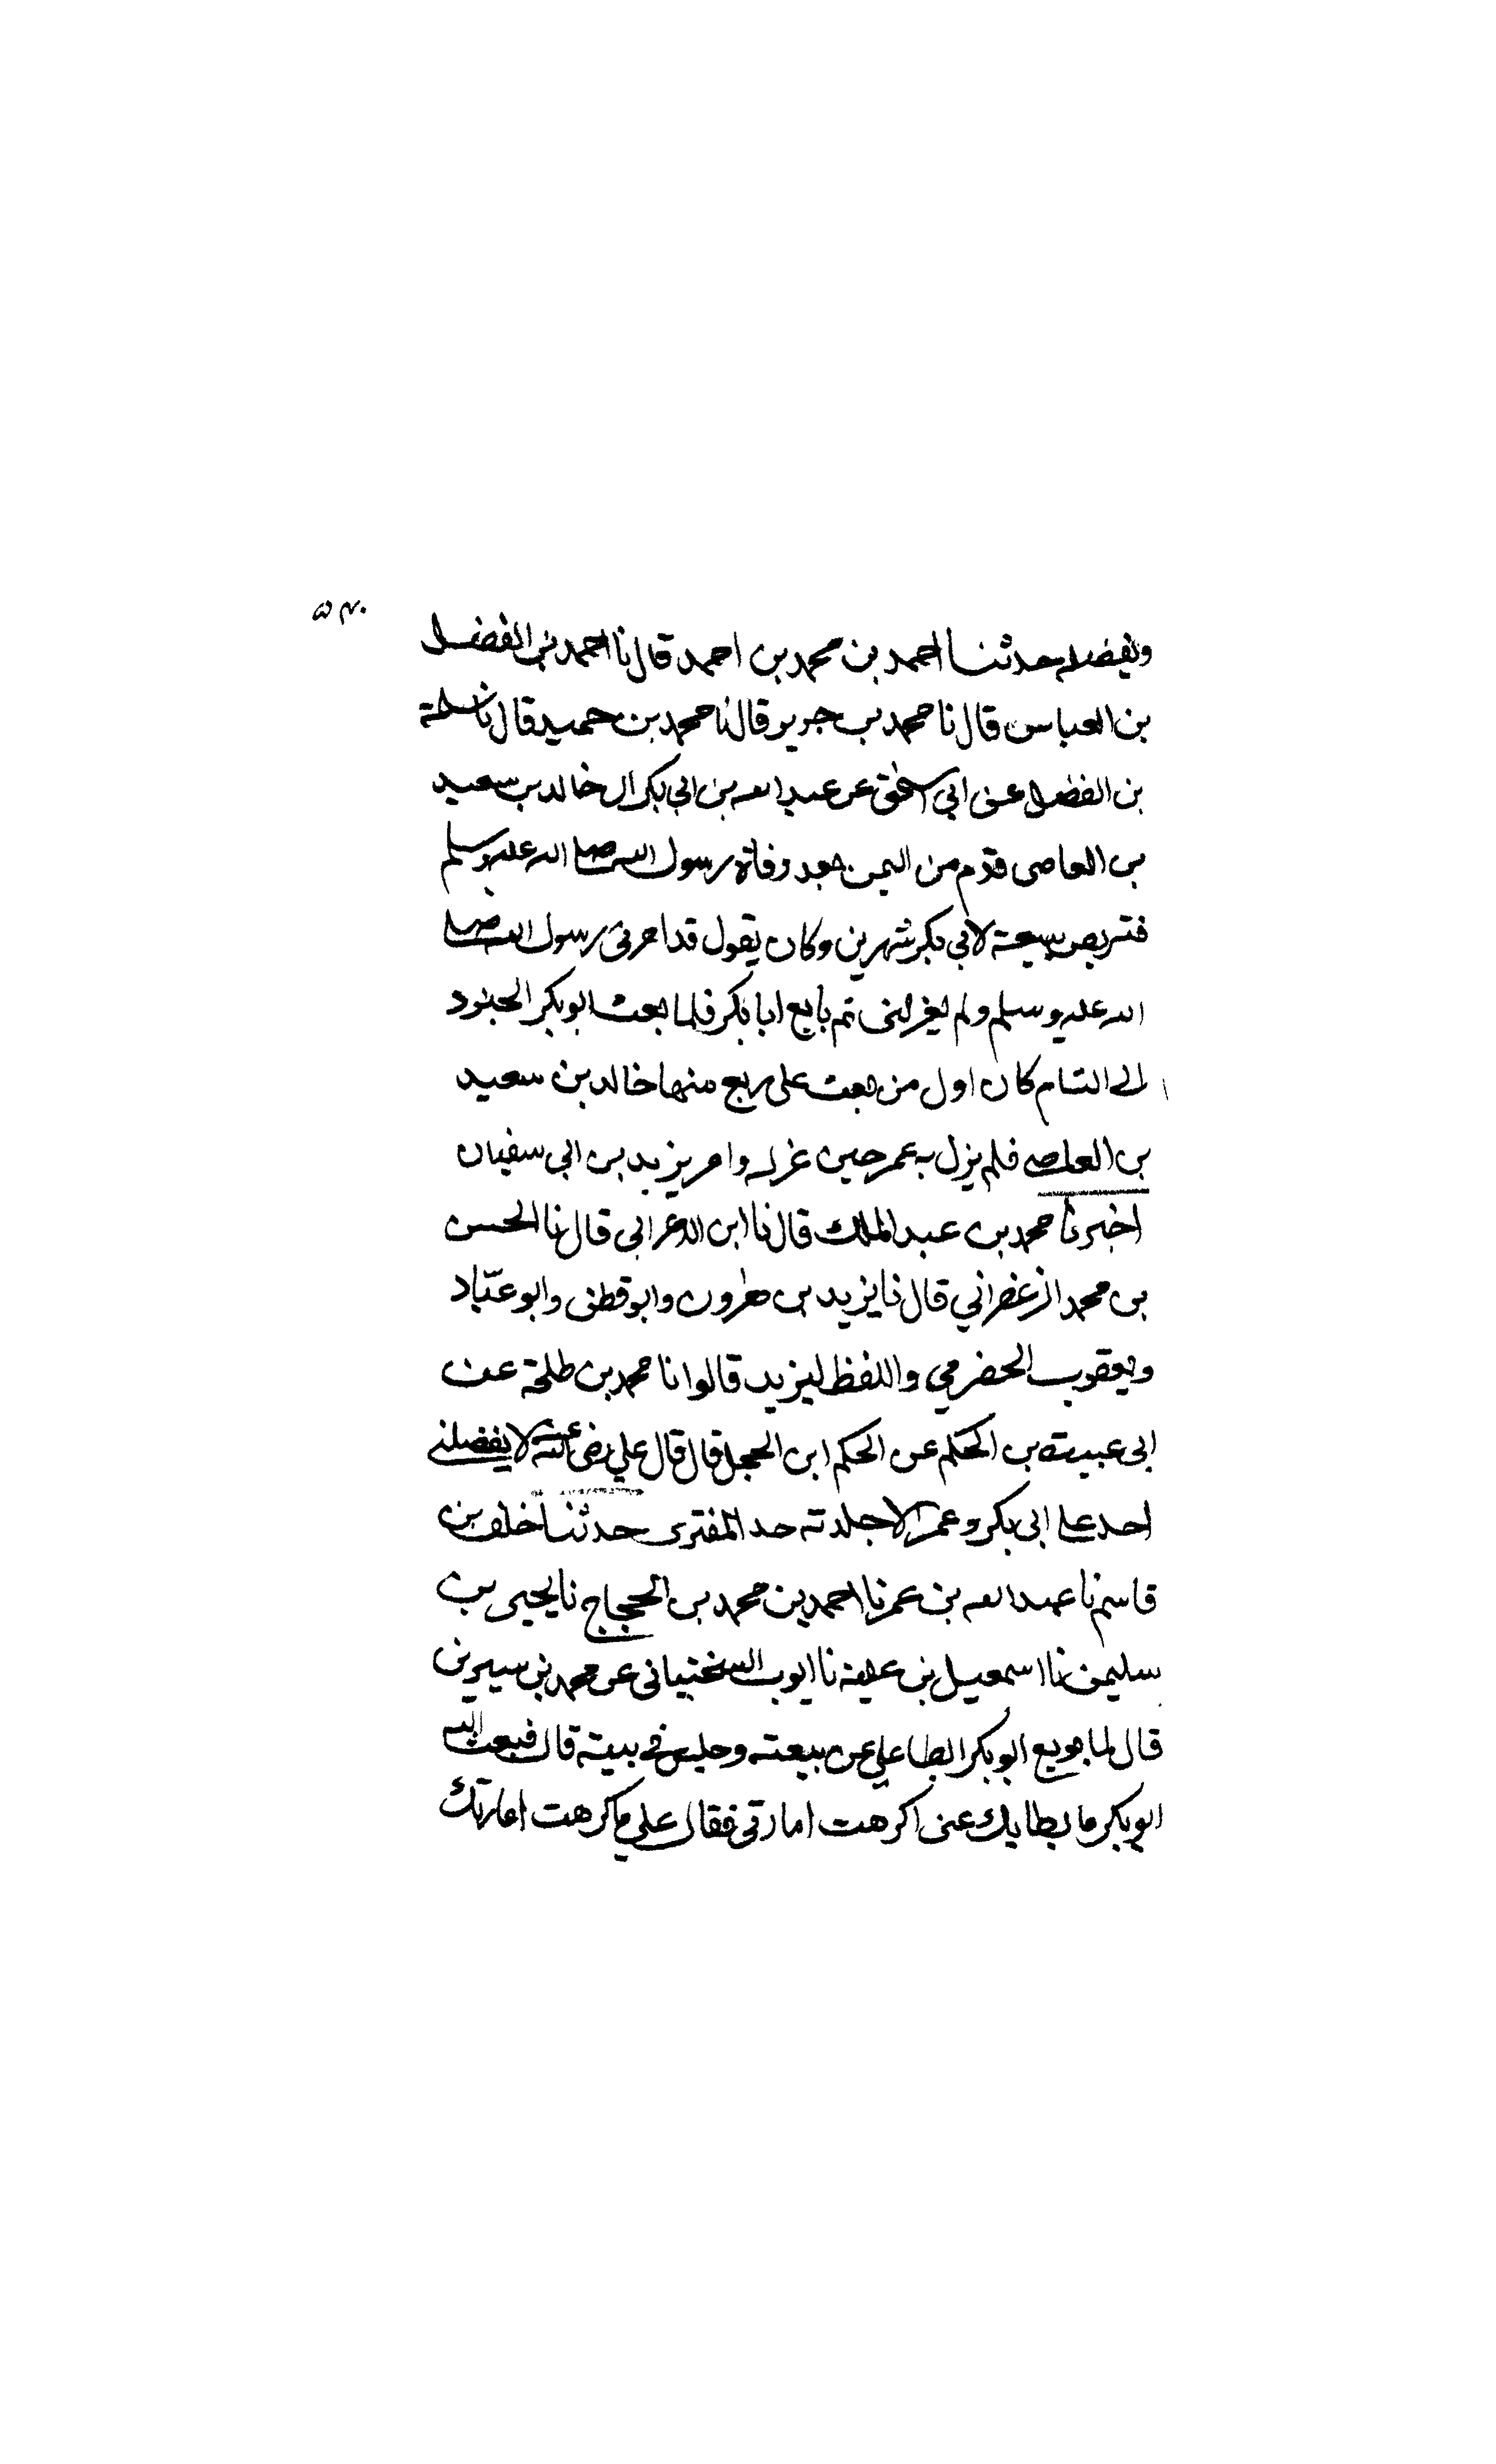 ويفضله حدثنا احمد بن محمد بن احمد قال نا احمد بن الفضل
بن العباس قال نا محمد بن جرير قال نا محمد بن حميد قال نا سلمة
بن الفضل عن ابي اسحق عن عبد الله بن ابي بكر ان خالد بن سعيد
بن العاصى قدم من اليمن بعد وفاة رسول الله صلى الله عليه وسلم
فتربص ببيعته لابي بكر شهرين وكان يقول قد امرنى رسول الله صلى
الله عليه وسلم ولم يعزلنى ثم بايع ابا بكر فلما بعث ابو بكر الجنود
الى الشام كان اول من بعث على ربع منها خالد بن سعيد
بن العاصى فلم يزل به عمر حين عزله وامر يزيد بن ابي سفيان
اخبرنا محمد بن عبد الملك قال نا ابن الاعرابى قال نا الحسن
بن محمد الزعفراني قال نا يزيد بن هارون وابو قطن وابو عبّاد
ويعقوب الحضرمي واللفظ ليزيد قالوا نا محمد بن طلحة عن
ابى عبيدة بن الحكم عن الحكم ابن الحجل قال قال علي رضى الله عنه لا يفضلني
احد على ابى بكر وعمر الا جلدته حد المفترى حدثنا خلف بن
قاسم نا عبد الله بن عمر نا احمد بن محمد بن الحجاج نا يحيى بن
سليمن نا اسمعيل بن علية نا ايوب السختيانى عن محمد بن سيرين
قال لما بويع ابو بكر ابطا علي عن بيعته وجلس في بيته قال فبعث اليه
ابو بكر ما بطا بك عنى اكرهت امارتى فقال علي ما كرهت امارتك